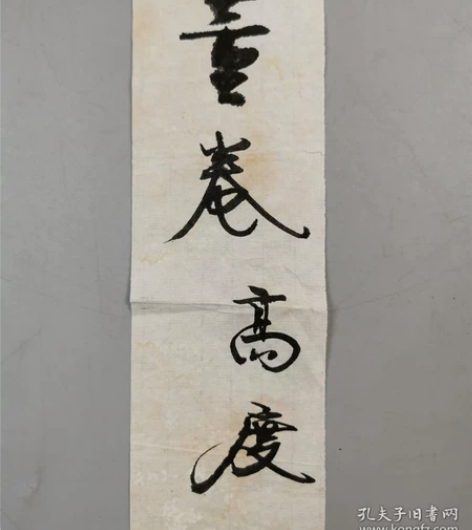 卷
高
度
孔夫子旧书网
www.kongfz.com